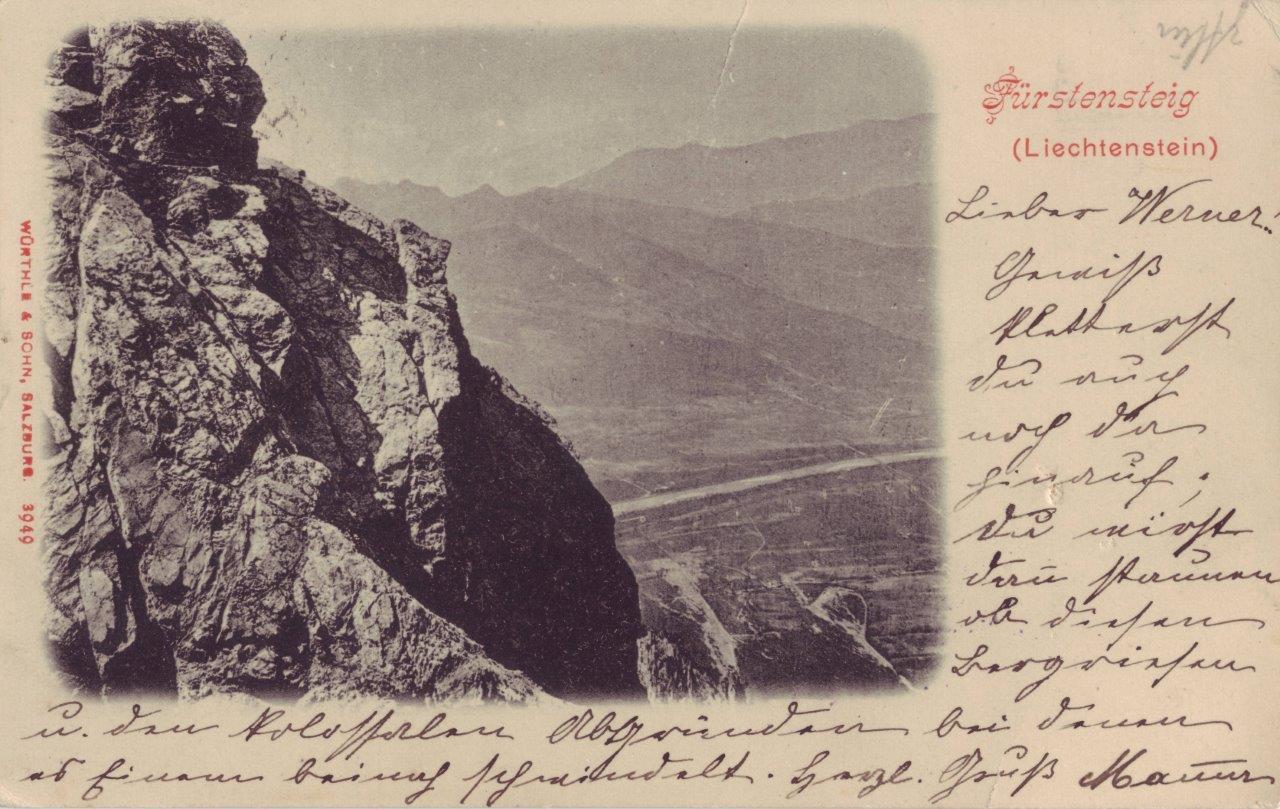 Fürstensteig
(Liechtenstein)
WÜRTHLE & SOHN, SALZBURG. 3949
Lieber Werner!
Gewiß
kletterst
du auch
noch da
hinauf;
du wirst
dan̄ staunen
ob diesen
Bergriesen
u. den kolossalen Abgründen bei denen
es Einem beinah schwindelt. Herzl. Gruß